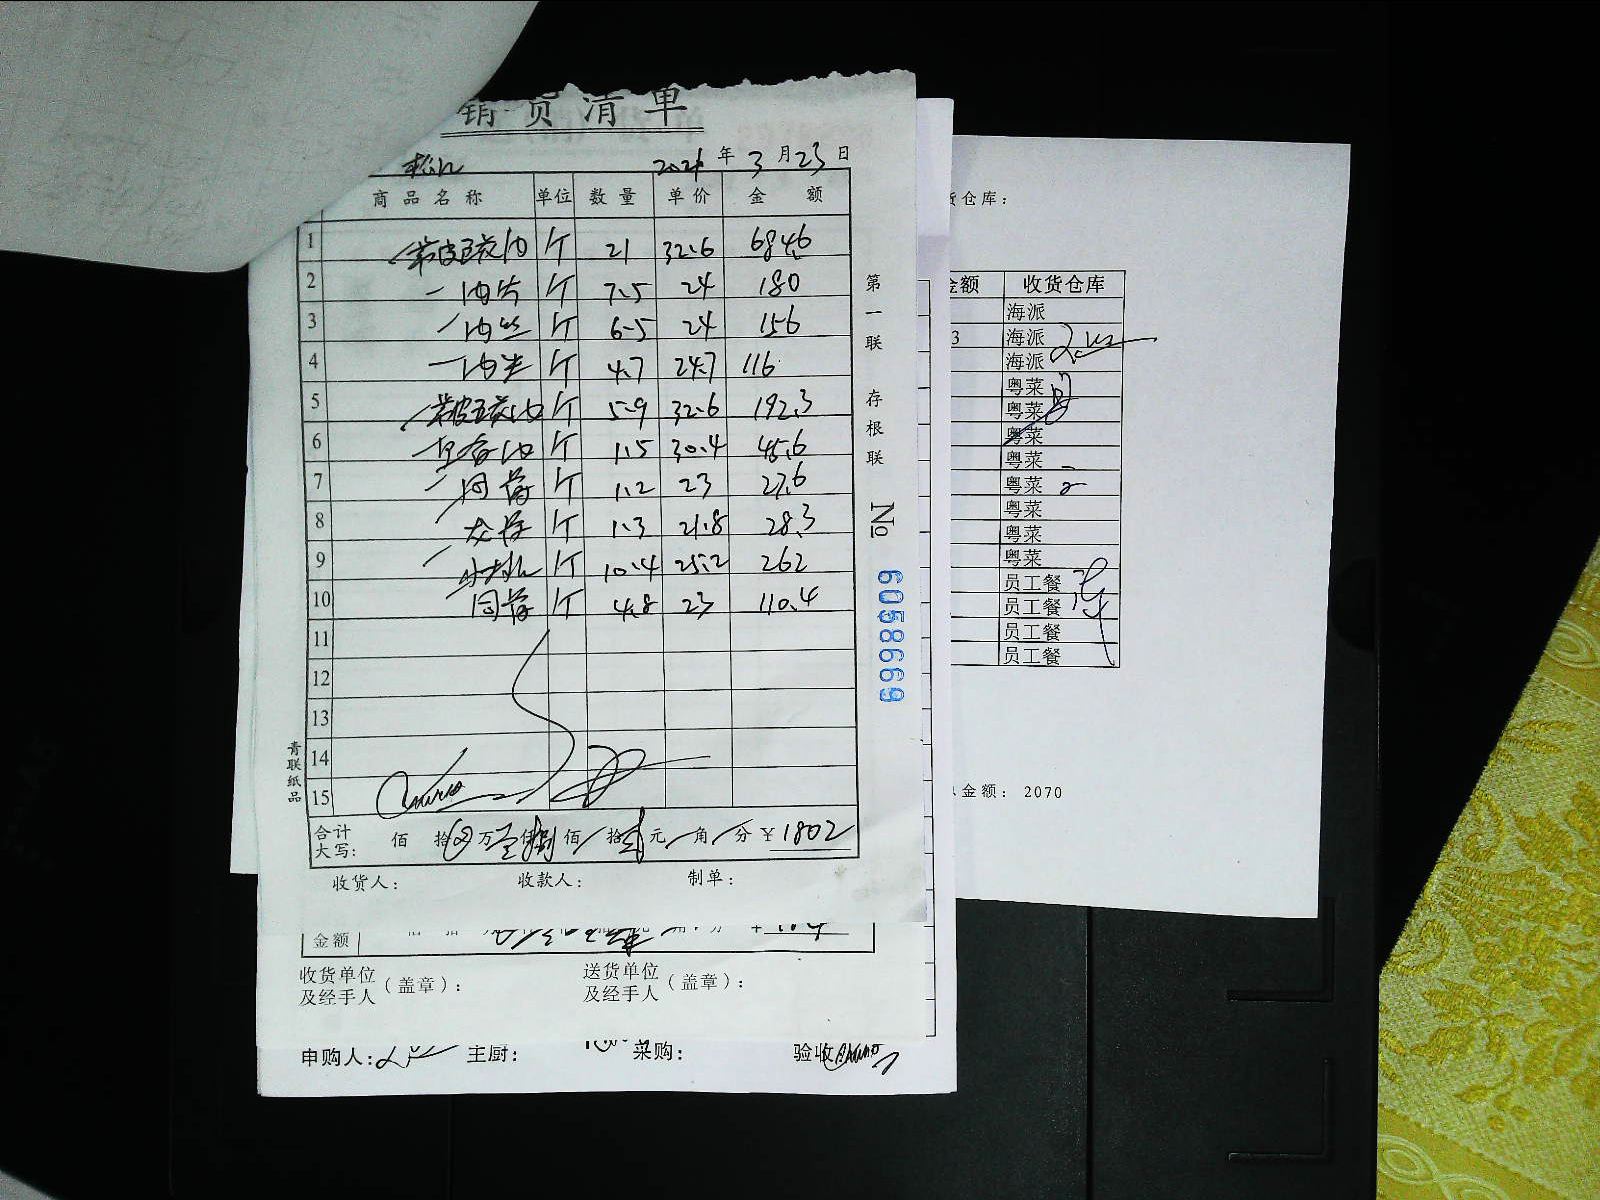 销货清单
2021年3月23日
商品名称 单位 数量 单价 金额
1 带皮五花肉 个 21 32.6 684.6
2 肉片 个 7.5 24 180
3 肉丝 个 6.5 24 156
4 个 4.7 24.7 116
5 带皮五花肉 个 5.9 32.6 192.3
6 个 1.5 30.4 45.6
7 筒骨 个 1.2 23 27.6
8 龙骨 个 1.3 21.8 28.3
9 个 10.4 25.2 262
10 筒骨 个 4.8 23 110.4
11
12
13
14
15
合计大写: 佰 拾 万 仟 佰 拾 元 角 分 ¥ 1802
收货人: 收款人: 制单:
第一联 存根联
No 6058669
青联纸品
金额
收货单位及经手人(盖章): 送货单位及经手人(盖章):
申购人: 主厨: 菜购: 验收
货仓库:
金额 收货仓库
海派
3 海派
海派
粤菜
粤菜
粤菜
粤菜
粤菜
粤菜
粤菜
粤菜
员工餐
员工餐
员工餐
员工餐
金额: 2070